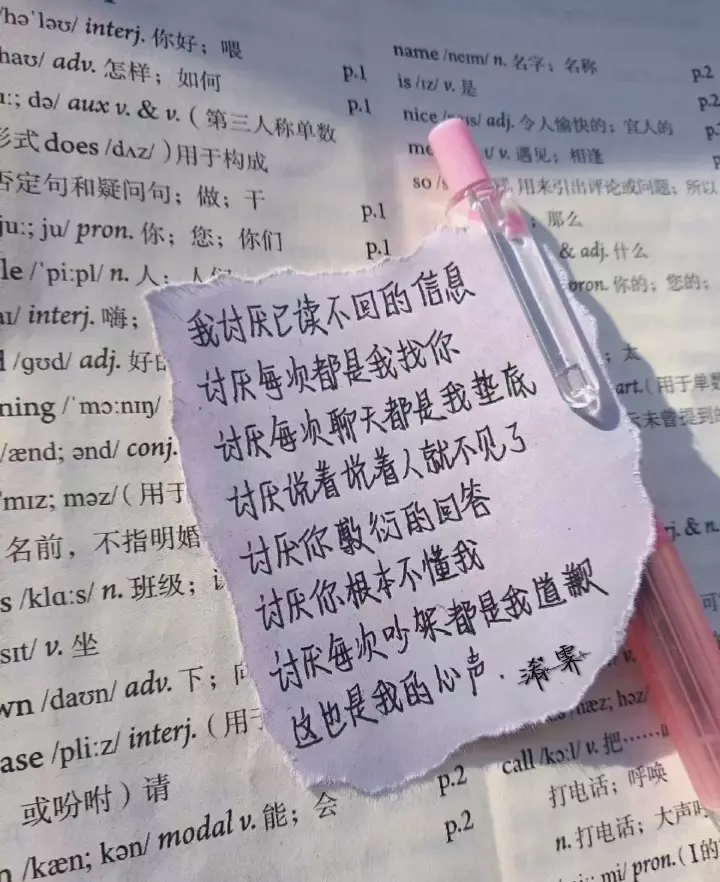 /həˈləʊ/ interj. 你好；喂
p.1
haʊ/ adv. 怎样；如何
p.1
uː; də/ aux v. & v.（第三人称单数
形式 does /dʌz/）用于构成
否定句和疑问句；做；干
p.1
juː; ju/ pron. 你；您；你们
p.1
le /ˈpiːpl/ n. 人；人们
aɪ/ interj. 嗨；
/ɡʊd/ adj. 好的
ning /ˈmɔːnɪŋ/
/ænd; ənd/ conj.
mɪz; məz/（用于
名前，不指明婚
s /klɑːs/ n. 班级；
sɪt/ v. 坐
wn /daʊn/ adv. 下；向
ase /pliːz/ interj.（用于
或吩咐）请
p.2
n /kæn; kən/ modal v. 能；会
p.2
name /neɪm/ n. 名字；名称
p.2
is /ɪz/ v. 是
p.2
nice adj. 令人愉快的；宜人的
p
v. 遇见；相逢
so 用来引出评论或问题；所以
；那么
& adj. 什么
pron. 你的；您的；
；太
art.（用于单数
未曾提到的
我讨厌已读不回的信息
讨厌每次都是我找你
讨厌每次聊天都是我垫底
讨厌说着说着人就不见了
讨厌你敷衍的回答
讨厌你根本不懂我
讨厌每次吵架都是我道歉
这也是我的心声.
rj. & n.
hæz; həz/
call /kɔːl/ v. 把……
打电话；呼唤
n. 打电话；大声
mi/ pron.（I的